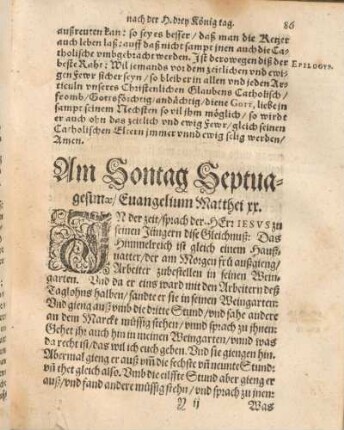 nach der H. drey König tag. 86
außreuten kan: so sey es besser / daß man die Ketzer
auch leben laß: auff daß nicht sampt jnen auch die Ca-
tholische vmbgebracht werden. Ist derowegen diß der EPILOGVS.
beste Raht: Wil jemands vor dem zeitlichen vnd ewi-
gen Fewr sicher seyn / so bleib er in allen vnd jeden Ar-
ticuln vnseres Christenlichen Glaubens Catholisch /
fromb / Gottsförchtig / andächtig / diene Gott, liebe in
sampt seinem Nechsten so vil jhm möglich / so wirdt
er auch ohn das zeitlich vnd ewig Fewr / gleich seinen
Catholischen Eltern jmmer vnnd ewig selig werden /
Amen.
Am Sontag Septua-
gesimæ / Euangelium Matthei xx.
IN der zeit / sprach der HErr IESVS zu
seinen Jüngern dise Gleichnuß: Das
Himmelreich ist gleich einem Hauß-
vatter / der am Morgen frü außgieng /
Arbeiter zubestellen in seinen Wein-
garten. Vnd da er eins ward mit den Arbeitern deß
Taglohns halben / sandte er sie in seinen Weingarten:
Vnd gieng auß vmb die dritte Stund / vnd sahe andere
an dem Marckt müssig stehen / vnnd sprach zu jhnen:
Gehet jhr auch hin in meinen Weingarten / vnnd was
da recht ist / das wil ich euch geben. Vnd sie giengen hin.
Abermal gieng er auß vm̃ die sechste vñ neunte Stund:
vñ thet gleich also. Vmb die eilffte Stund aber gieng er
auß / vnd fand andere müssig stehn / vnd sprach zu jnen:
Y ij Was